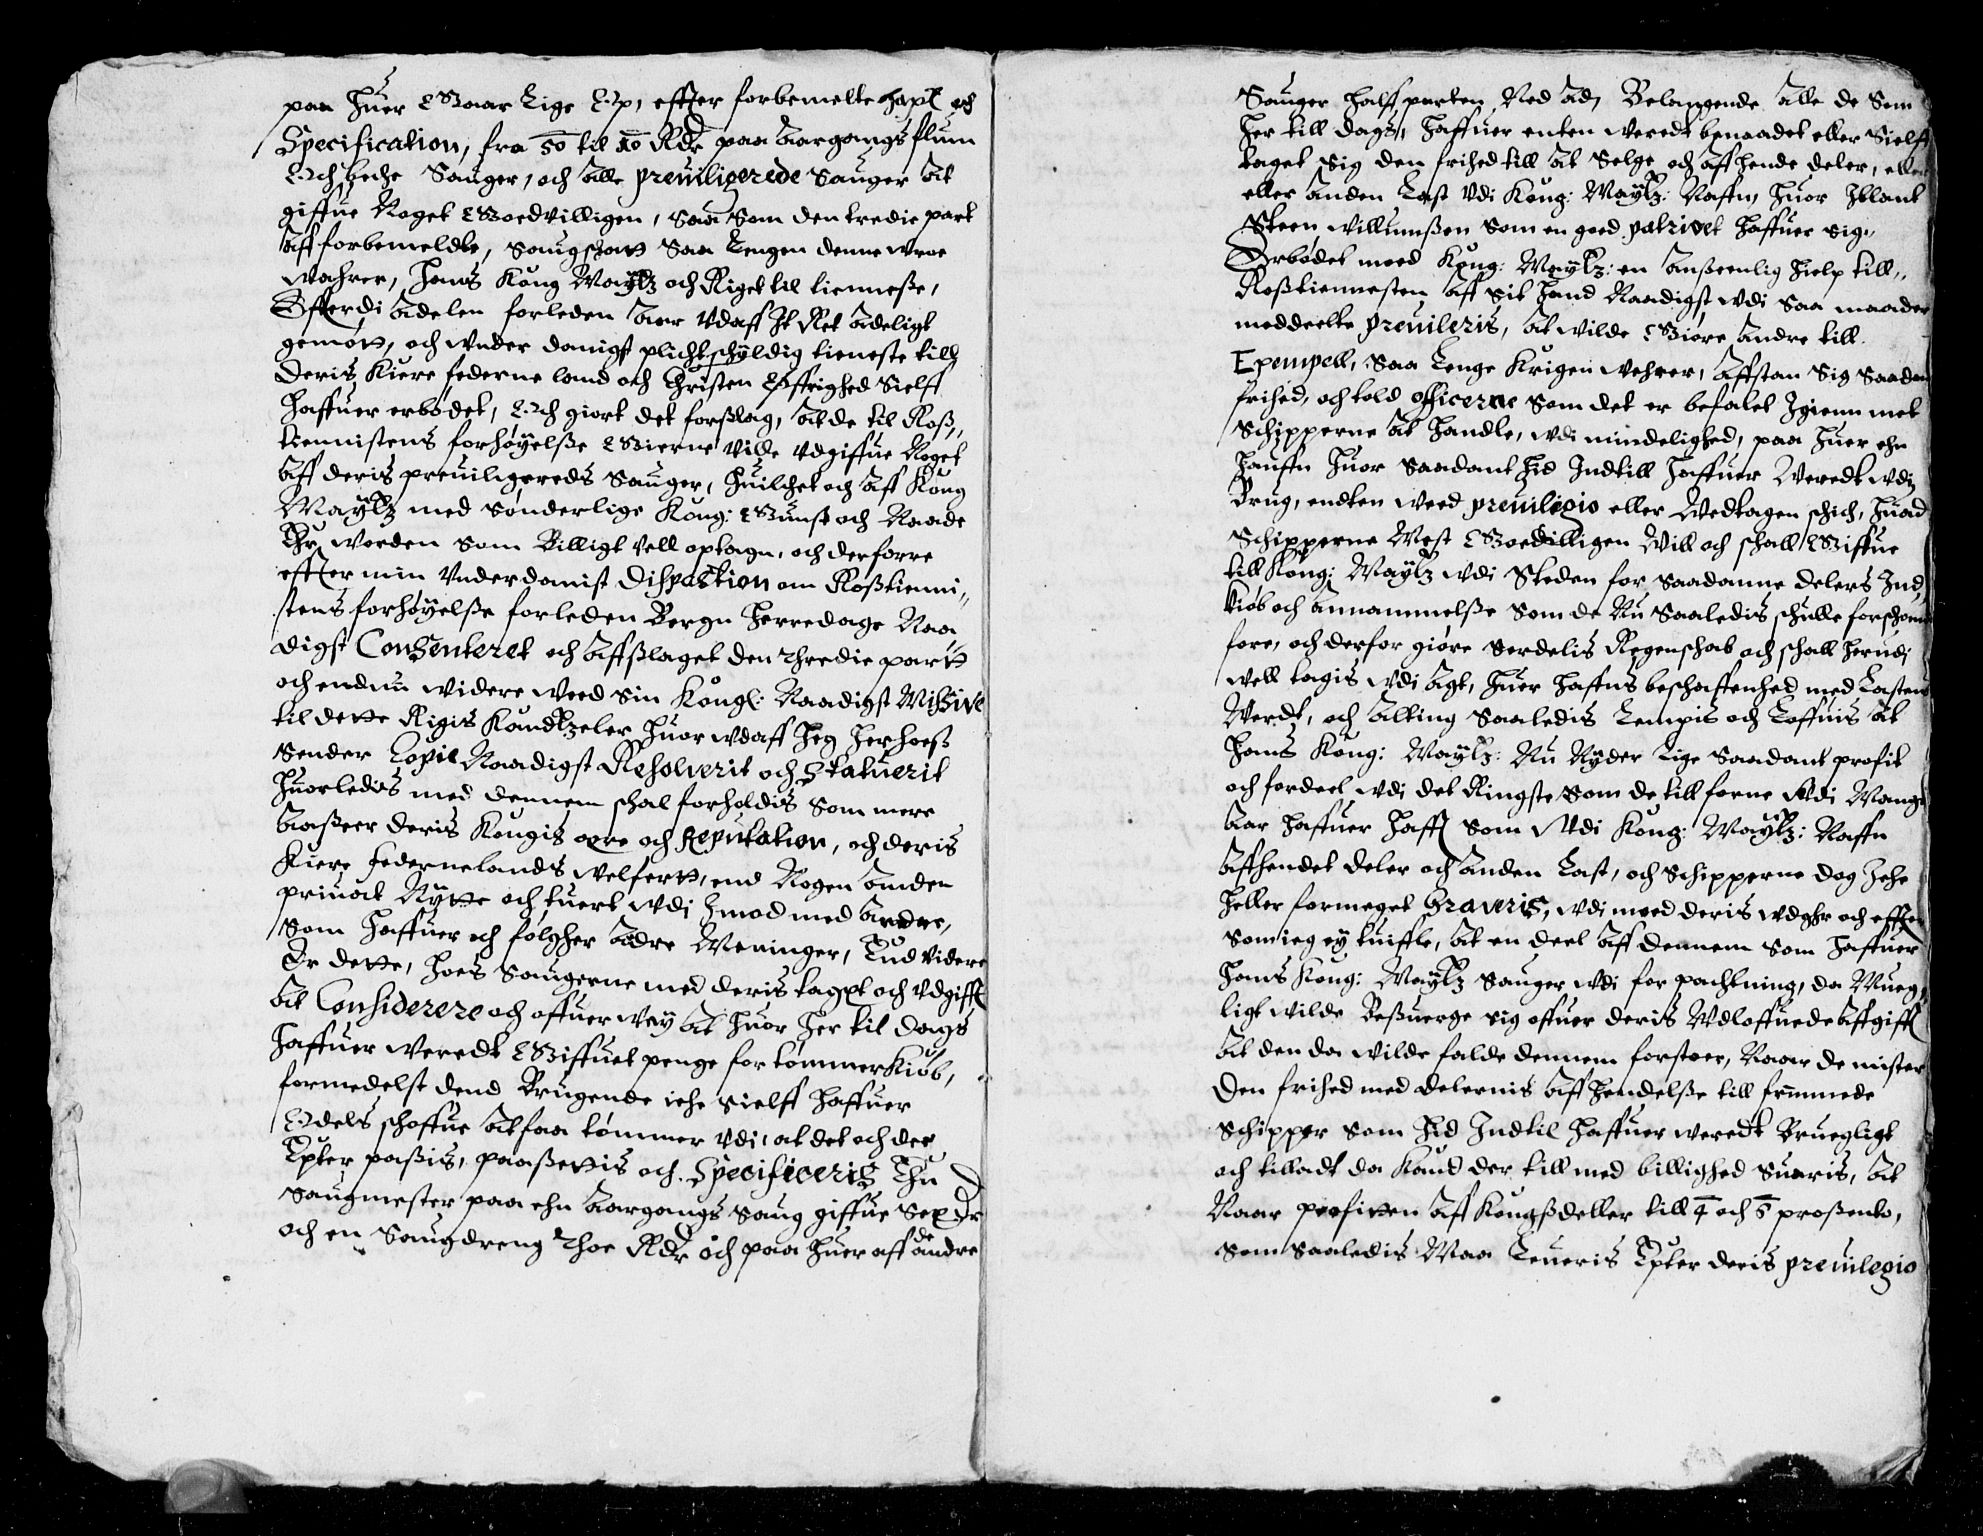 paa huer Gaar lige Op, effter forbemelte och
Specification, fra 50 til 10 Rdr paa aargangs flum
Och beche Sauger, och alle preuiligerede Sauger at
giffue Noget Goedvilligen, saa som den tredie part
aff forbemeldte, saugschatt saa lengen denne
wahrer, hans Kong Maytz och Riget til tienneste,
Efterdi adelen forleden aar vdaff It Ret adeligt
gemøtt, och vnder danigst plichtschyldig tieneste till
deris kiere federne land och Christen Øffrighed sielff
haffuer erbødet, Och giort det forslag, at de til Ross,,
tiennistens forhøyelsse Gierne vilde vdgiffue Noget
aff deris preuiligereds Sauger, huilchet och aff Kong
Maytz med sønderlige Kong: Gunst och Naade
Ehr worden som billigt vell optagn, och derforre
effter min vnderdanist Disposition om Rosstienni,,
stens forhøyelsse forleden Bergn herredage Naa
digst Consenteret och affslaget den thredie partt
och endnu widere weed sin Kongl: Naadigst Missive
til dette Rigis Kandtzeler huor wdaff Jeg herhoess
sender Copie Naadigst Resolverit och Statuerit
huorledis med dennem schal forholdis som mere
aasseer deris Kongis ære och Reputation, och deris
kiere federnelands welfertt, end Nogen anden
priuat Nytte och tuert wdi Imod med andre,
som haffuer och følgher andre Meninger, End videre
Er dette, hoes Saugerne med deris taxt och vdgifft
at Considerere och offuerwey at huor her til dags
haffuer weredt Giffuet penge for tømmerkiøb,
formedelst dend Brugende iche sielff haffuer
Odels schoffue at faa tømmer vdi, at det och der
Epter passis, paasettis och Specificeris En
Saugmester paa ehn aargangs saug giffue Sex dr
och en Saugdreng Thoe Rdr och paa huer aff de andre
Sauger halff parten Ned ad, Belangende alle de som
her till dags, haffuer enten weredt benaadet eller sielff
taget sig den frihed till at selge och affhende deler, eller
eller anden last vdi Kong: Maytz: Naffn, huor Iblant
Steen willumssen som en goed patriot haffuer sig,,
Erbødet meed Kong: Maytz: en ansseenlig hielp till,,
Rosstiennesten aff sit hand Naadigst wdi saa maader
meddeelte preuileris, at wilde Giøre andre till
Exempell, saa lenge krigen wehrer, affstaa sig saadan
frihed, och told officerne som det er befalet Igienn met
schipperne at handle, wdi mindelighed, paa huer ehn
hauffn huor saadant hid Indtill haffuer weredt wdi
Brug, endten weed preuilegio eller Wedtagen schich, huad
Schipperne Mest Goedvilligen Will och schall Giffue
till Kong: Maytz wdi steden for saadanne delers Ind,,
kiøb och annammelsse som de Nu saaledis schulle forschaane
fore, och derfor giøre serdelis Regenschab och schall herudi
well tagis wdi agt, huer haffns beschaffenhed med lastens
Werdt, och alting saaledis lempis och Loffuis at
hans Kong: Maytz: Nu Nyder lige saadant profit
och fordeel wdi det Ringste som de till forne wdi Mange
aar haffuer hafft som Vdi Kong: Maytz: Naffn
affhendet deler och anden last, och schipperne dog iche
heller formeget Graveris, wdi meed deris wdgifft och effter
som ieg ey tuiffle, at en deel aff dennem som haffuer
hans Kong: Maytz Sauger wdi for pachtning, da Mueg,,
ligt wilde Bessuerge sig offuer deris Vdloffuede affgifft
at den da wilde falde dennem forstoer, Naar de mister
den frihed med delernis affhendelsse till fremmede
schipper som hid Indtil haffuer weredt Bruegligt
och tilladt da kand der till med billighed suaris, at
Naar profitten aff Kongssdeller till 4 och 5 prossento,
som saaledis Maa leueris Epter deris preuilegio